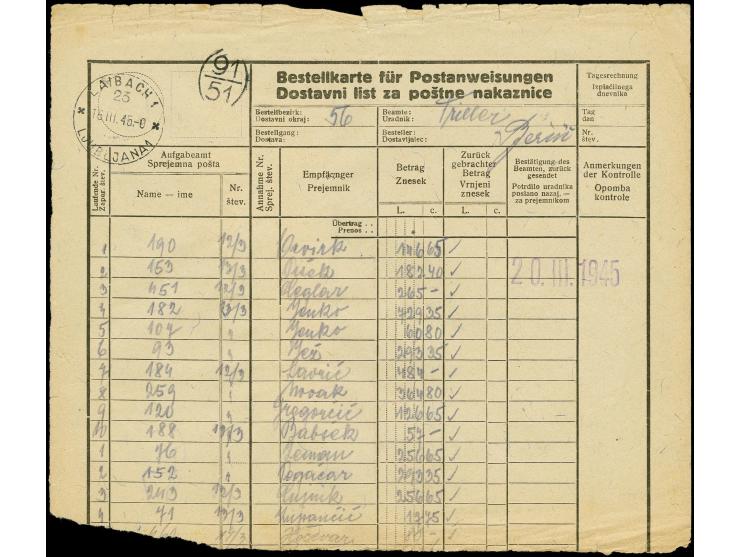 LAIBACH 1
23
16.III.45.-0
LJUBLJANA 1
91
51
Bestellkarte für Postanweisungen
Dostavni list za poštne nakaznice
Tagesrechnung
Izplačilnega
dnevnika
Bestellbezirk:
Dostavni okraj: 56
Beamte:
Uradnik:
Tag
dan
Bestellgang:
Dostava:
Besteller:
Dostavljalec:
Nr.
štev.
Laufende Nr.
Zapor. štev.
Aufgabeamt
Sprejemna pošta
Name — ime
Nr.
štev.
Annahme Nr.
Sprej. štev.
Empfänger
Prejemnik
Betrag
Znesek
L. c.
Zurück
gebrachter
Betrag
Vrnjeni
znesek
L. c.
Bestätigung des
Beamten, zurück
gesendet
Potrdilo uradnika
poslano nazaj, —
za prejemnikom
Anmerkungen
der Kontrolle
Opomba
kontrole
Übertrag . .
Prenos . .
1 190 12/3 ✓
2 153 13/3 182 40 ✓
20. III. 1945
3 451 12/3 Ceglar 265 - ✓
4 182 Jenko 429 35 ✓
5 107 " Jenko 60 80 ✓
6 93 " Jež 293 35 ✓
7 184 12/3 Lavrič 484 - ✓
8 259 " Novak 364 80 ✓
9 120 " Gregorčič 126 65 ✓
10 188 Babšek 57 - ✓
1 76 " Zeman 256 65 ✓
2 152 " Pogačar 293 35 ✓
3 243 12/3 256 65 ✓
4 71 12/3 Zupančič ✓